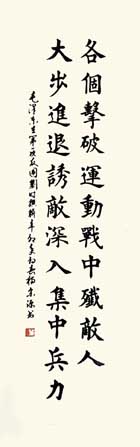 各個擊破運動戰中殲敵人
大步進退誘敵深入集中兵力
毛澤東 反圍剿時